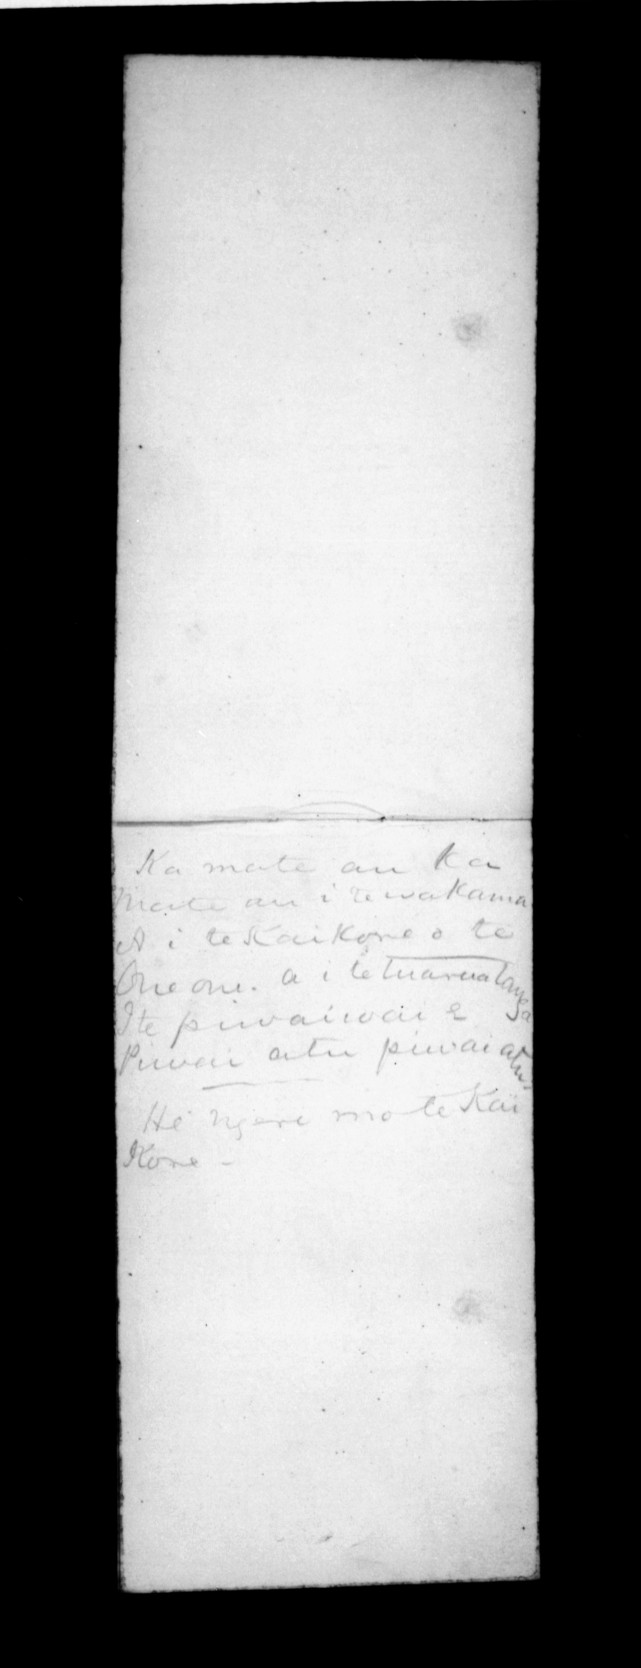 Ka mate au ka
mate au i te wakama
A i te Kaikore o te
One one. a i te tuaruatanga
I te piwaiwai e
Piwai atu piwai atu
He ngeri mo te Kai
Kore -